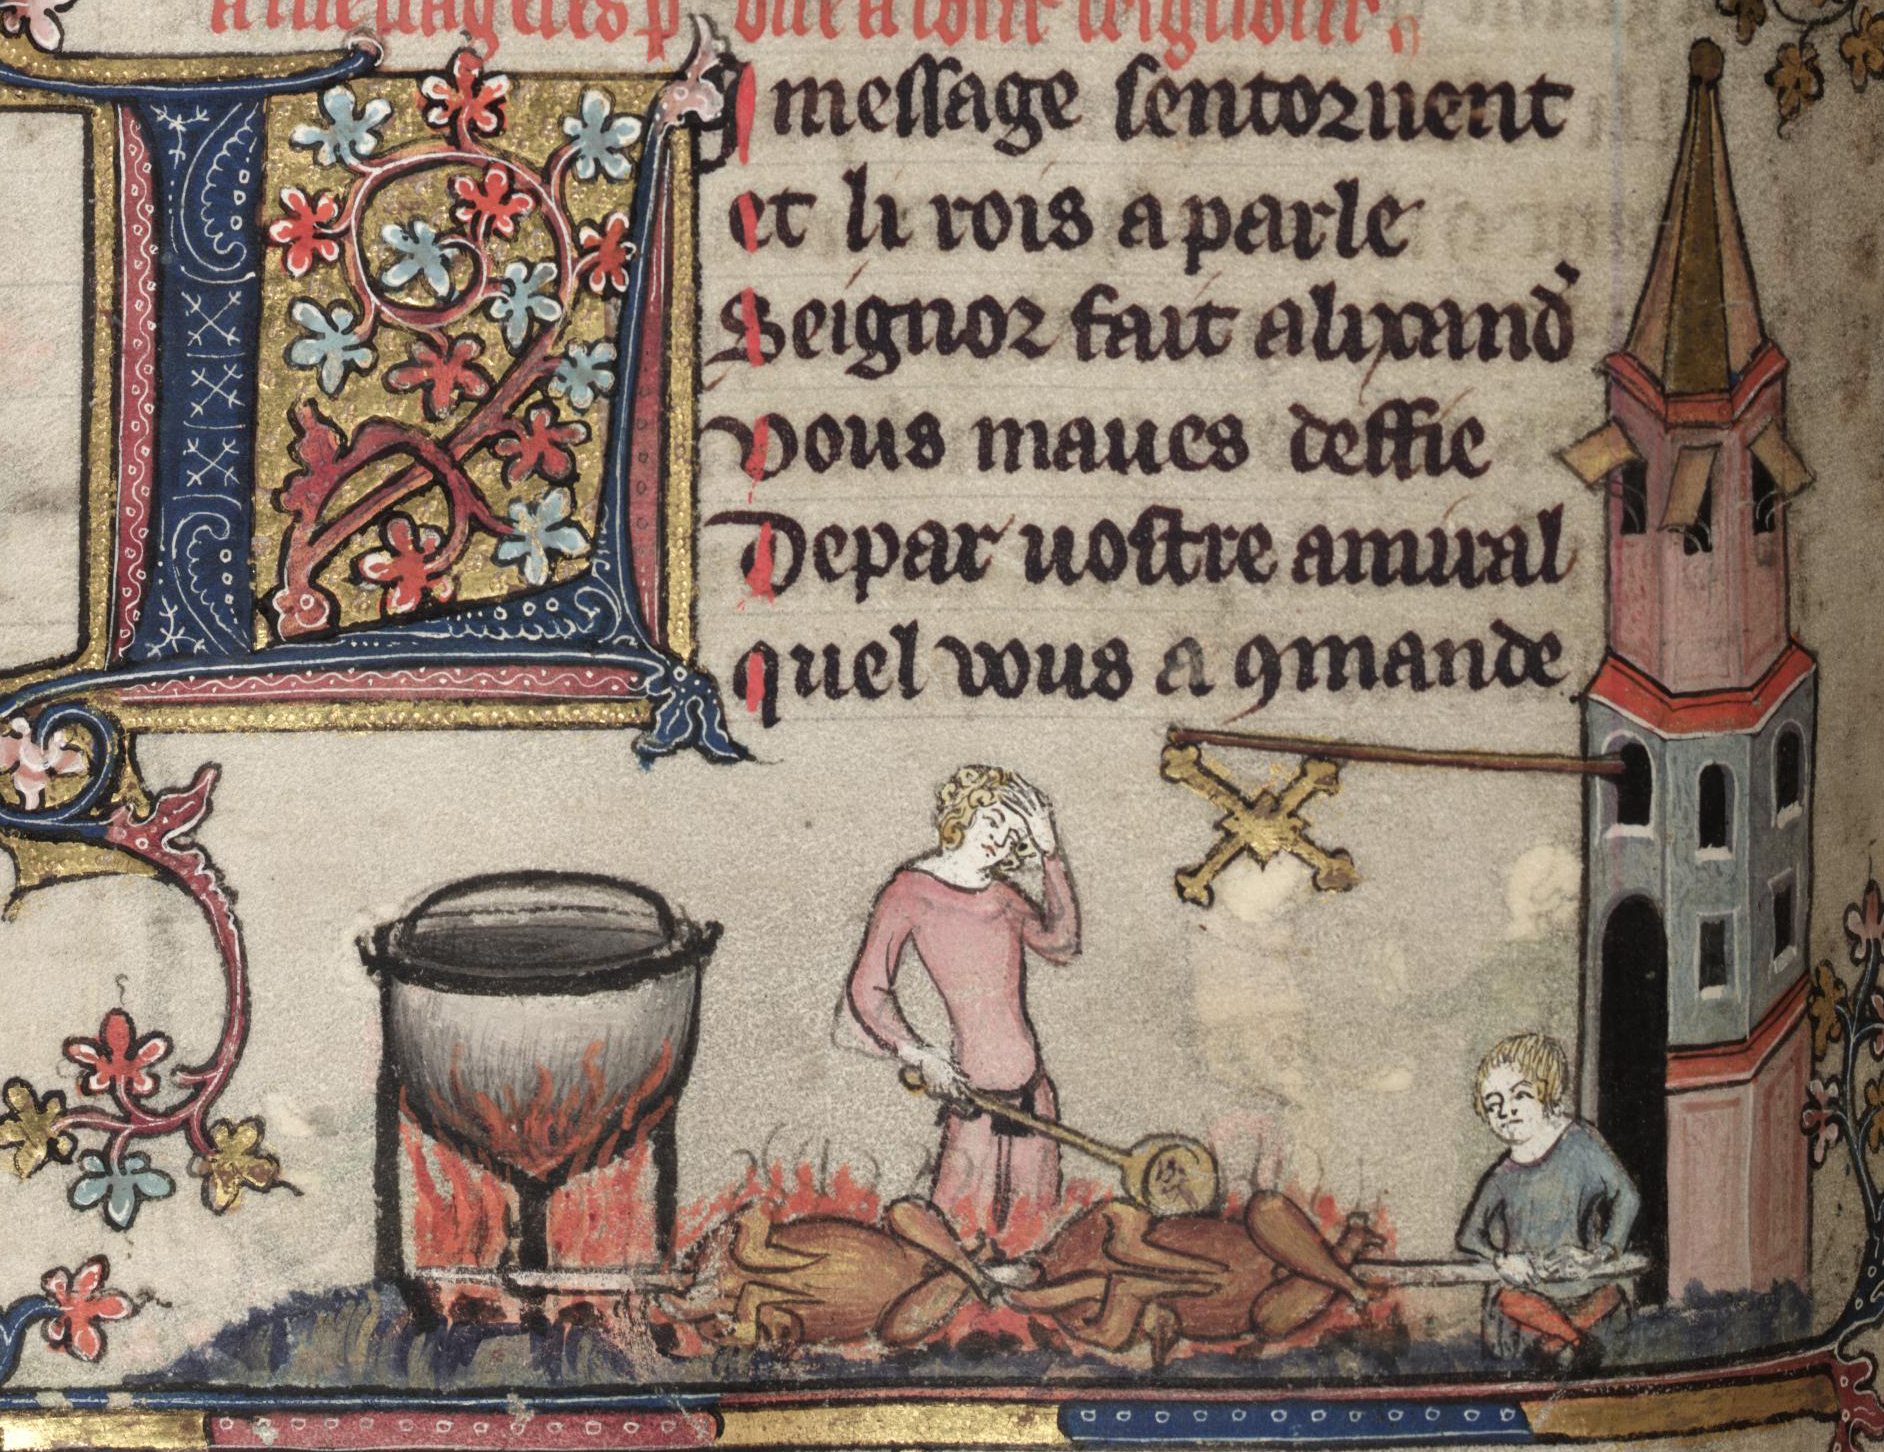 Ly message sentornent
et li rois a parle
Seignor fait alixand'
vous maues deffie
Depar uostre amiral
quel vous a ꝯmande